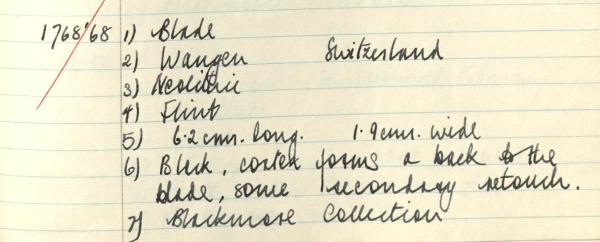 1768'68 1) Blade
2) Wangen Switzerland
3) Neolithic
4) Flint
5) 6.2cms. long. 1.9cms. wide
6) Black, cortex forms a back to the
blade, some secondary retouch.
7) Blackmore Collection